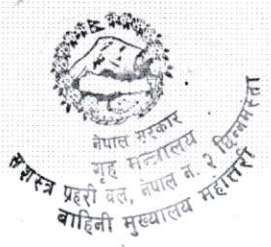 नेपाल सरकार
गृह मन्त्रालय
सशस्त्र प्रहरी वल, नेपाल न. २ छिन्नमस्ता
बाहिनी मुख्यालय महोत्तरी